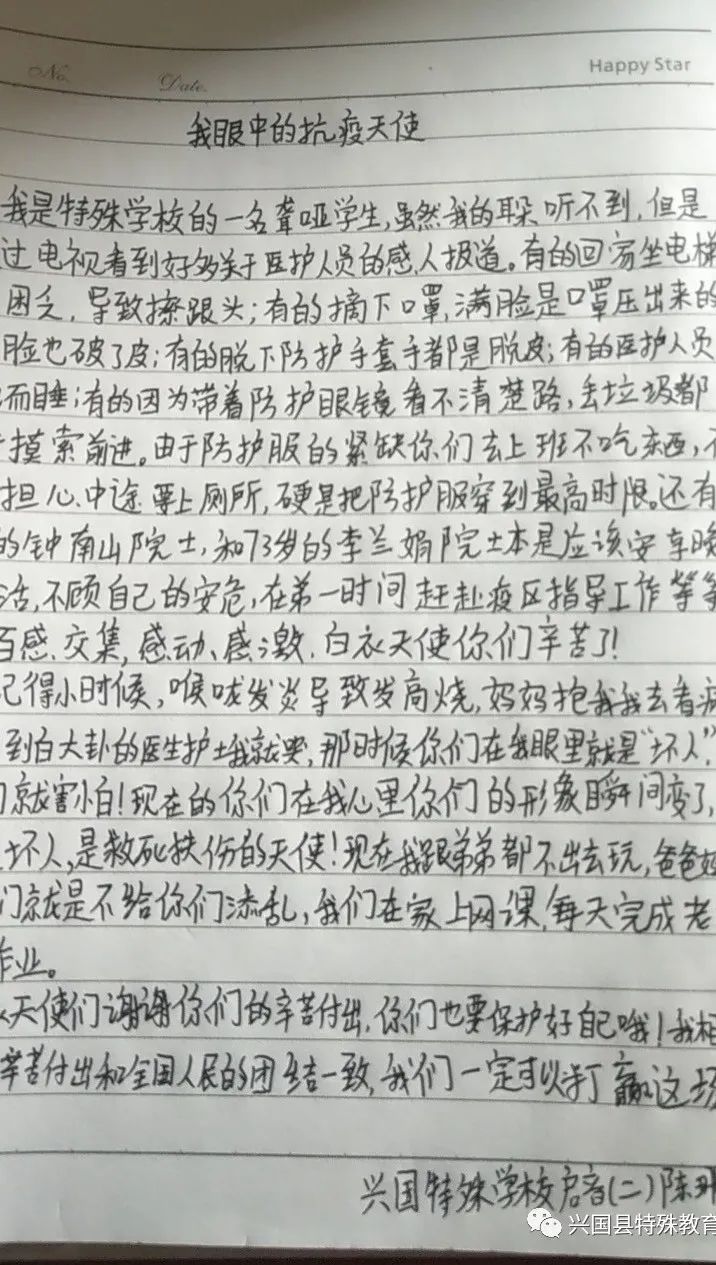 No.
Date.
Happy Star
我眼中的抗疫天使
我是特殊学校的一名聋哑学生,虽然我的耳朵听不到,但是
过电视看到好多关于医护人员的感人报道。有的回家坐电梯
困乏,导致擦跟头;有的摘下口罩,满脸是口罩压出来的
脸也破了皮;有的脱下防护手套手都是脱皮;有的医护人员
而睡;有的因为带着防护眼镜看不清楚路,丢垃圾都
摸索前进。由于防护服的紧缺你们去上班不吃东西,不
担心中途要上厕所,硬是把防护服穿到最高时限。还有
的钟南山院士,和73岁的李兰娟院士本是应该安享晚
活,不顾自己的安危,在第一时间赶赴疫区指导工作等等
百感交集,感动、感激.白衣天使你们辛苦了!
记得小时候,喉咙发炎导致发高烧,妈妈抱我我去看病
到白大卦的医生护士我就哭,那时候你们在我眼里就是“坏人”,
就害怕!现在的你们在我心里你们的形象瞬间变了,
坏人,是救死扶伤的天使!现在我跟弟弟都不出去玩,爸爸妈
们就是不给你们添乱,我们在家上网课,每天完成老
作业。
天使们谢谢你们的辛苦付出,你们也要保护好自己哦!我相
辛苦付出和全国人民的团结一致,我们一定可以打赢这场
兴国特殊学校启音(二)陈
兴国县特殊教育